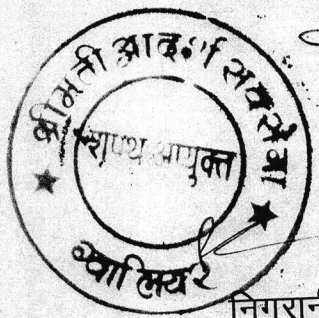 श्रीमती आदर्श सक्सेना
शपथ आयुक्त
ग्वालियर
निगरानी